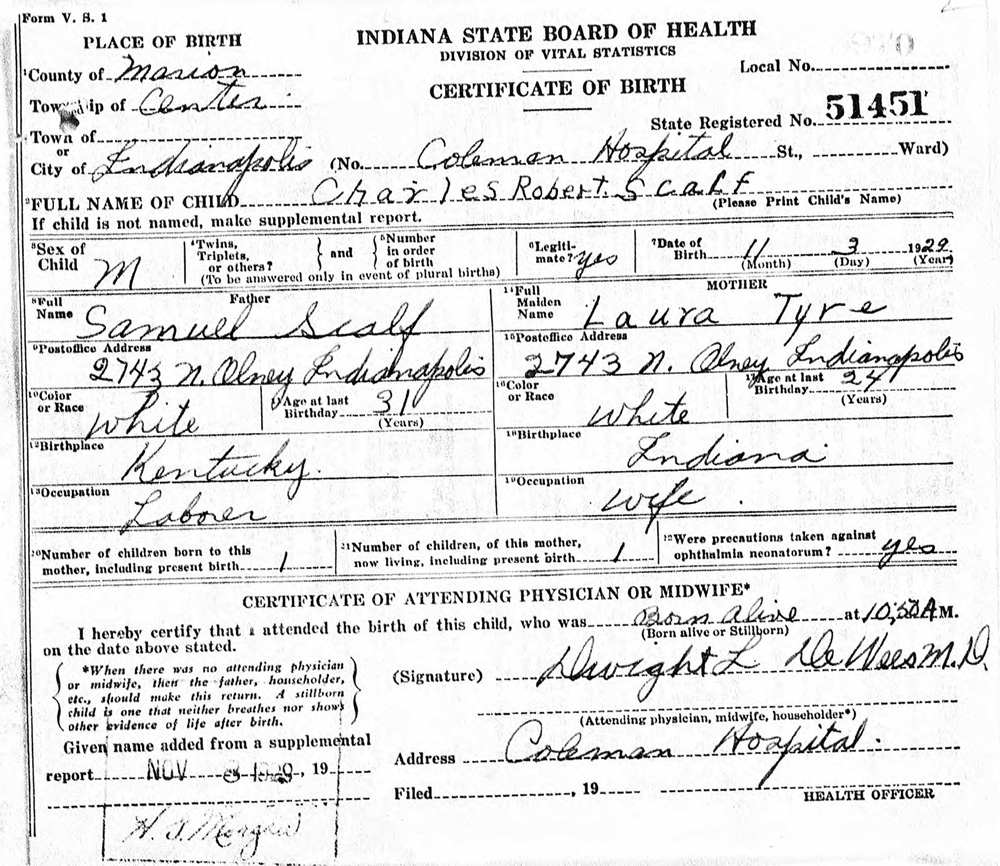 Form V. S. 1
PLACE OF BIRTH
INDIANA STATE BOARD OF HEALTH
DIVISION OF VITAL STATISTICS
CERTIFICATE OF BIRTH
Local No.
State Registered No. 51451
1 County of Marion
Township of Center
Town of
or
City of Indianapolis (No. Coleman Hospital St., Ward)
2 FULL NAME OF CHILD Charles Robert Scalf
(Please Print Child's Name)
If child is not named, make supplemental report.
3 Sex of Child M
4 Twins, Triplets, or others? } and { 5 Number in order of birth
(To be answered only in event of plural births)
6 Legitimate? yes
7 Date of Birth 11 3 1929
(Month) (Day) (Year)
Father
8 Full Name Samuel Scalf
9 Postoffice Address
2743 N. Olney Indianapolis
10 Color or Race White
11 Age at last Birthday 31
(Years)
12 Birthplace
Kentucky.
13 Occupation
Laborer
MOTHER
14 Full Maiden Name Laura Tyre
15 Postoffice Address
2743 N. Olney Indianapolis
16 Color or Race White
17 Age at last Birthday 24
(Years)
18 Birthplace
Indiana
19 Occupation
Wife.
20 Number of children born to this mother, including present birth 1
21 Number of children, of this mother, now living, including present birth 1
22 Were precautions taken against ophthalmia neonatorum? yes
CERTIFICATE OF ATTENDING PHYSICIAN OR MIDWIFE*
I hereby certify that I attended the birth of this child, who was Born Alive at 10:50 A M.
(Born alive or Stillborn)
on the date above stated.
*When there was no attending physician
or midwife, then the father, householder,
etc., should make this return. A stillborn
child is one that neither breathes nor shows
other evidence of life after birth.
(Signature) Dwight L DeWees M.D.
(Attending physician, midwife, householder*)
Given name added from a supplemental
report NOV 8 1929, 19
Address Coleman Hospital.
Filed , 19
HEALTH OFFICER